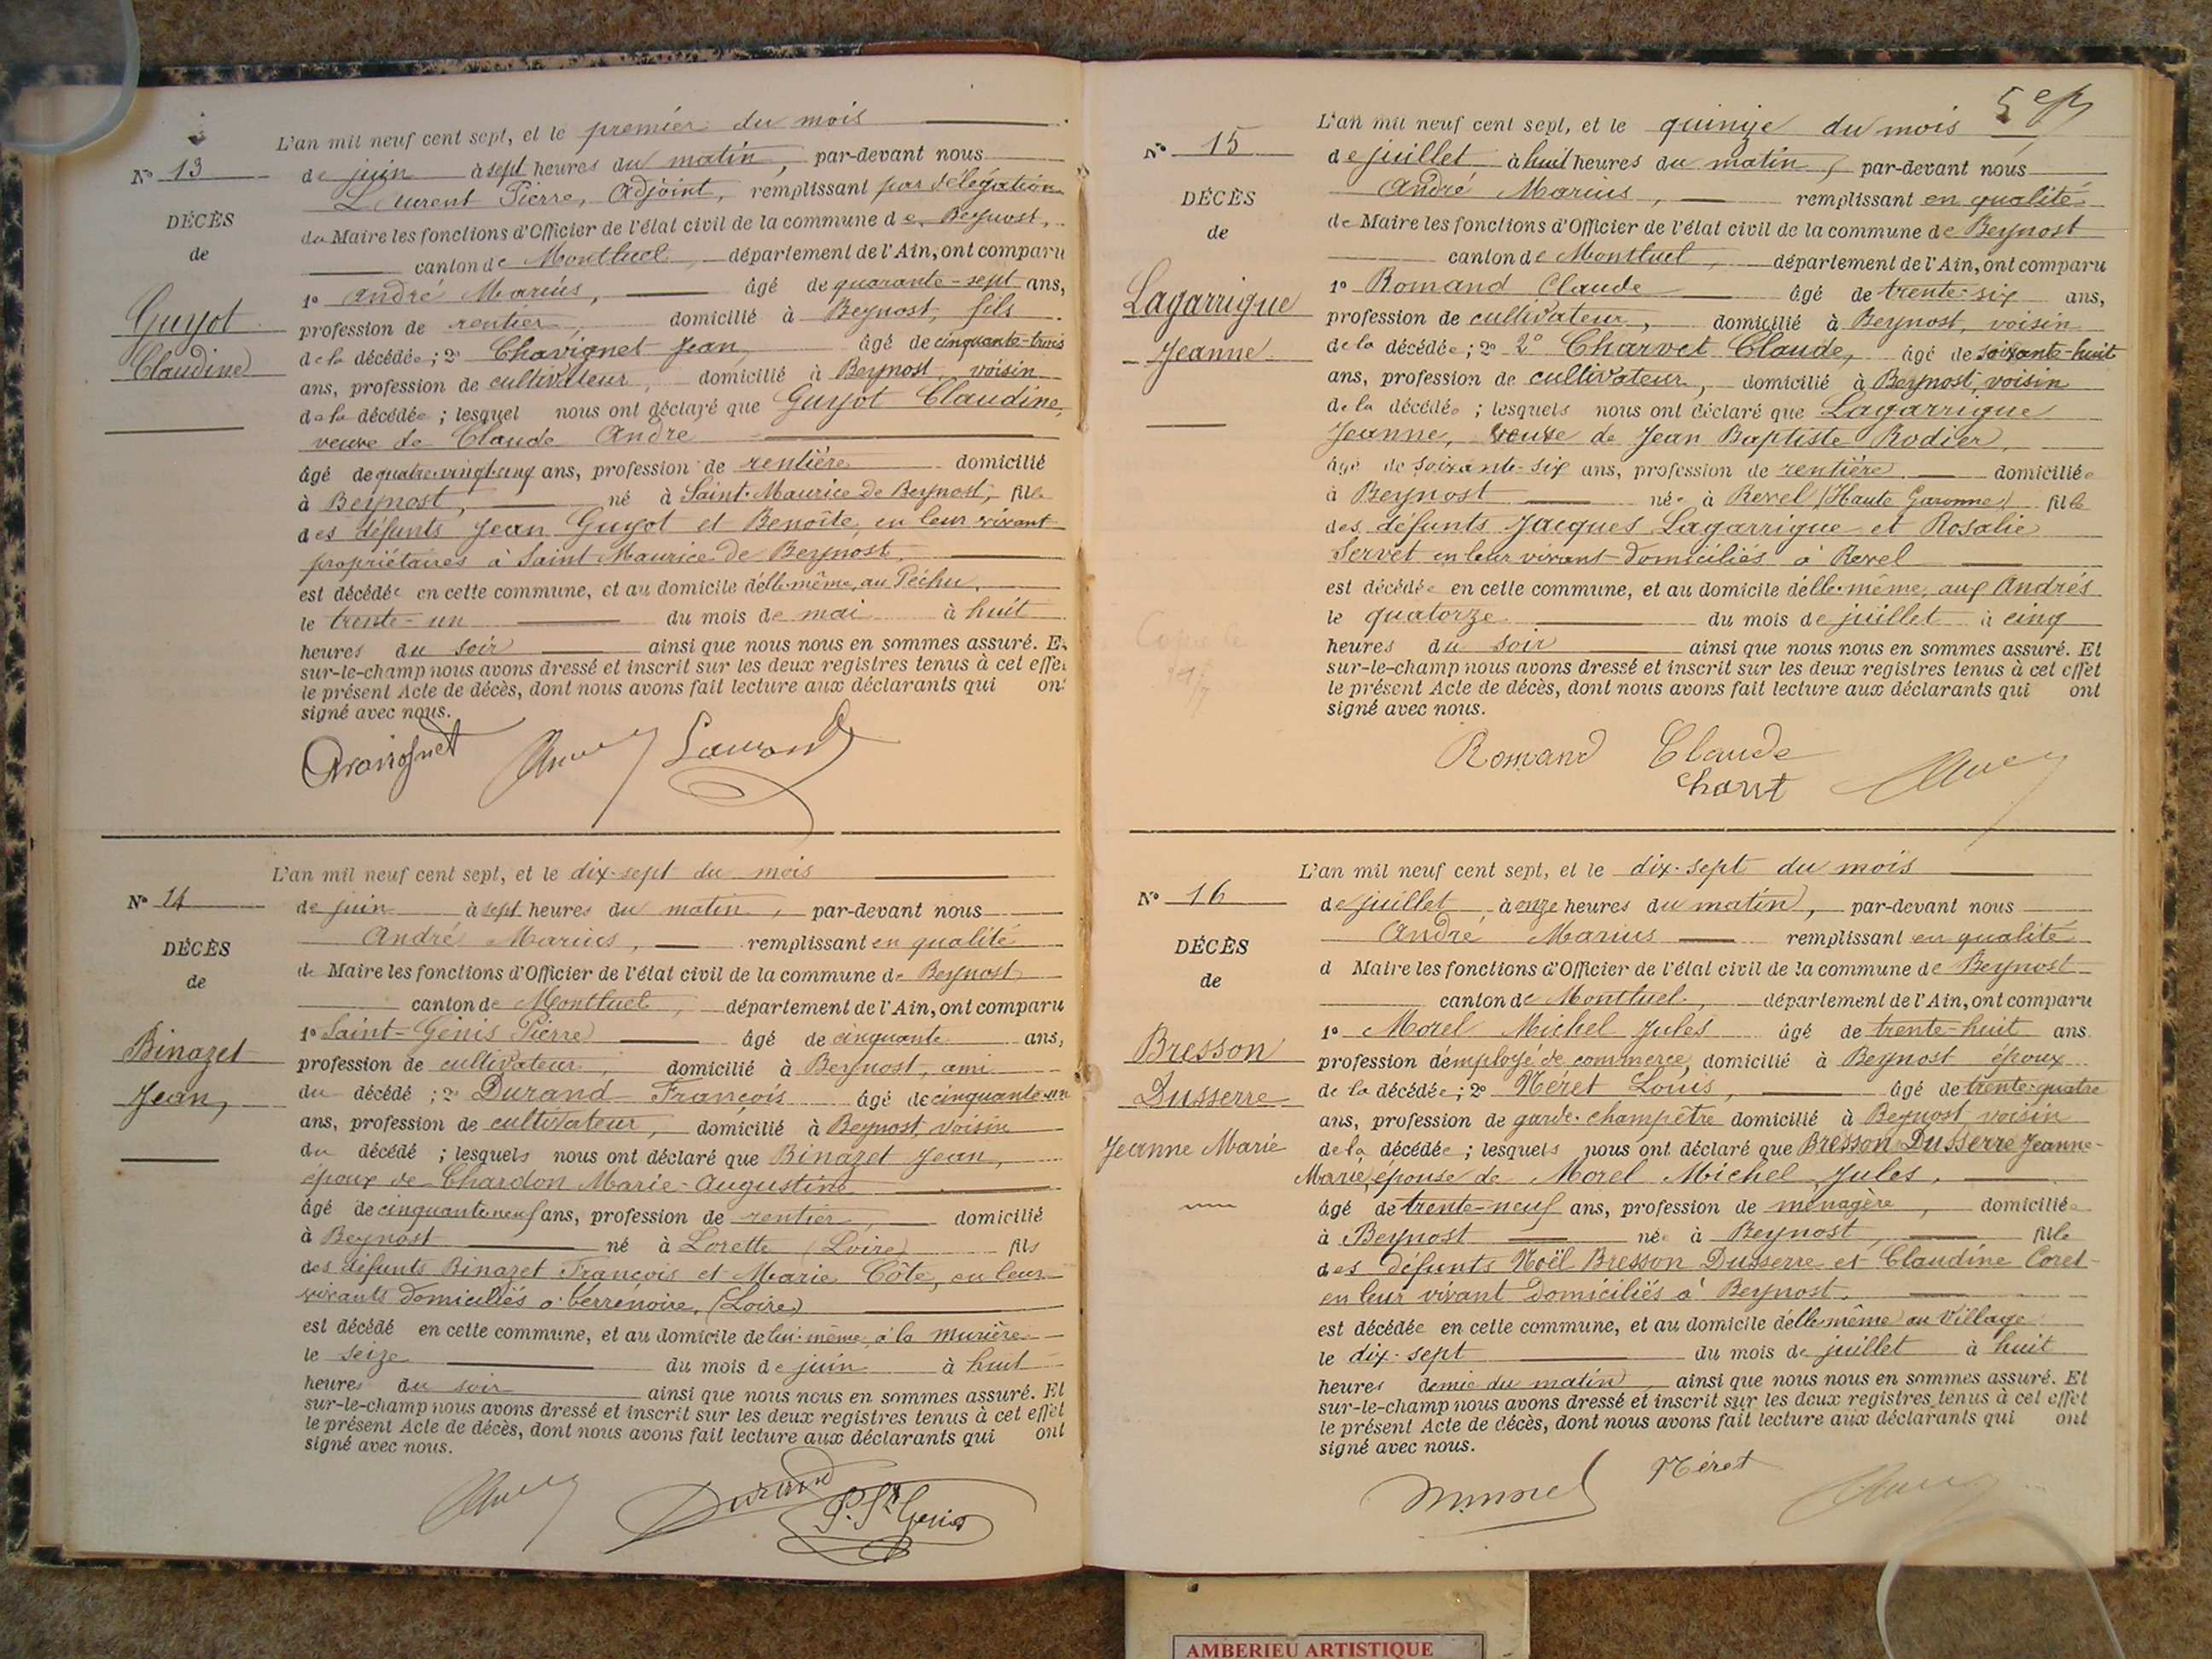 L'an mil neuf cent sept, et le premier du mois
N° 13
de juin à sept heures du matin, par-devant nous
Laurent Pierre, Adjoint, remplissant par délégation
DÉCÈS
du Maire les fonctions d'Officier de l'état civil de la commune de Beynost,
de
canton de Montluel, département de l'Ain, ont comparu
1° André Marius, âgé de quarante-sept ans,
Guyot
profession de rentier, domicilié à Beynost, fils
Claudine
de la décédée; 2° Chavignet Jean âgé de cinquante-trois
ans, profession de cultivateur, domicilié à Beynost, voisin
de la décédée; lesquel nous ont déclaré que Guyot Claudine,
veuve de Claude André
âgé de quatre-vingt-cinq ans, profession de rentière domicilié
à Beynost, né à Saint-Maurice de Beynost, fille
des défunts Jean Guyot et Benoîte, en leur vivant
propriétaires à Saint Maurice de Beynost
est décédée en cette commune, et au domicile d'elle-même, au Péchu,
le trente-un du mois de mai à huit
heures du soir ainsi que nous nous en sommes assuré. Et
sur-le-champ nous avons dressé et inscrit sur les deux registres tenus à cet effet
le présent Acte de décès, dont nous avons fait lecture aux déclarants qui ont
signé avec nous.
Laurent
L'an mil neuf cent sept, et le dix-sept du mois
N° 14
de juin à sept heures du matin, par-devant nous
André Marius, remplissant en qualité
DÉCÈS
de Maire les fonctions d'Officier de l'état civil de la commune de Beynost
de
canton de Montluel, département de l'Ain, ont comparu
1° Saint-Genis Pierre âgé de cinquante ans,
Binazet
profession de cultivateur, domicilié à Beynost, ami
Jean,
du décédé; 2° Durand François âgé de cinquante-un
ans, profession de cultivateur, domicilié à Beynost, voisin
du décédé; lesquels nous ont déclaré que Binazet Jean,
époux de Chardon Marie-Augustine
âgé de cinquante neuf ans, profession de rentier, domicilié
à Beynost né à Lorette (Loire) fils
des défunts Binazet François et Marie Côte, en leur
vivants domiciliés à Cerrenoire, (Loire)
est décédé en cette commune, et au domicile de lui-même, à la Murière
le seize du mois de juin à huit
heures du soir ainsi que nous nous en sommes assuré. Et
sur-le-champ nous avons dressé et inscrit sur les deux registres tenus à cet effet
le présent Acte de décès, dont nous avons fait lecture aux déclarants qui ont
signé avec nous.
Durand
P. St Genis
L'an mil neuf cent sept, et le quinze du mois
N° 15
de juillet à huit heures du matin, par-devant nous
André Marius, remplissant en qualité
DÉCÈS
de Maire les fonctions d'Officier de l'état civil de la commune de Beynost
de
canton de Montluel, département de l'Ain, ont comparu
1° Romand Claude âgé de trente-six ans,
Lagarrigue
profession de cultivateur, domicilié à Beynost, voisin
Jeanne
de la décédée; 2° 2° Charvet Claude, âgé de soixante-huit
ans, profession de cultivateur, domicilié à Beynost, voisin
de la décédée; lesquels nous ont déclaré que Lagarrigue
Jeanne, veuve de Jean Baptiste Rodier,
âgé de soixante-six ans, profession de rentière domiciliée
à Beynost née à Revel (Haute Garonne) fille
des défunts Jacques Lagarrigue et Rosalie
Servet en leur vivant domiciliés à Revel
est décédée en cette commune, et au domicile d'elle-même, aux Andrés
le quatorze du mois de juillet à cinq
heures du soir ainsi que nous nous en sommes assuré. Et
sur-le-champ nous avons dressé et inscrit sur les deux registres tenus à cet effet
le présent Acte de décès, dont nous avons fait lecture aux déclarants qui ont
signé avec nous.
Romand Claude
L'an mil neuf cent sept, et le dix-sept du mois
N° 16
de juillet à onze heures du matin, par-devant nous
André Marius remplissant en qualité
DÉCÈS
d Maire les fonctions d'Officier de l'état civil de la commune de Beynost
de
canton de Montluel, département de l'Ain, ont comparu
1° Morel Michel Jules âgé de trente-huit ans
Bresson
profession d'employé de commerce, domicilié à Beynost époux
Dusserre
de la décédée; 2° Néret Louis, âgé de trente-quatre
ans, profession de garde-champêtre domicilié à Beynost voisin
Jeanne Marie
de la décédée; lesquels nous ont déclaré que Bresson Dusserre Jeanne-
Marie, épouse de Morel Michel Jules,
âgé de trente-neuf ans, profession de ménagère, domiciliée
à Beynost née à Beynost, fille
des défunts Noël Bresson Dusserre et Claudine Coret
en leur vivant domiciliés à Beynost.
est décédée en cette commune, et au domicile d'elle-même au Village
le dix-sept du mois de juillet à huit
heures demie du matin, ainsi que nous nous en sommes assuré. Et
sur-le-champ nous avons dressé et inscrit sur les deux registres tenus à cet effet
le présent Acte de décès, dont nous avons fait lecture aux déclarants qui ont
signé avec nous.
Néret
AMBERIEU ARTISTIQUE